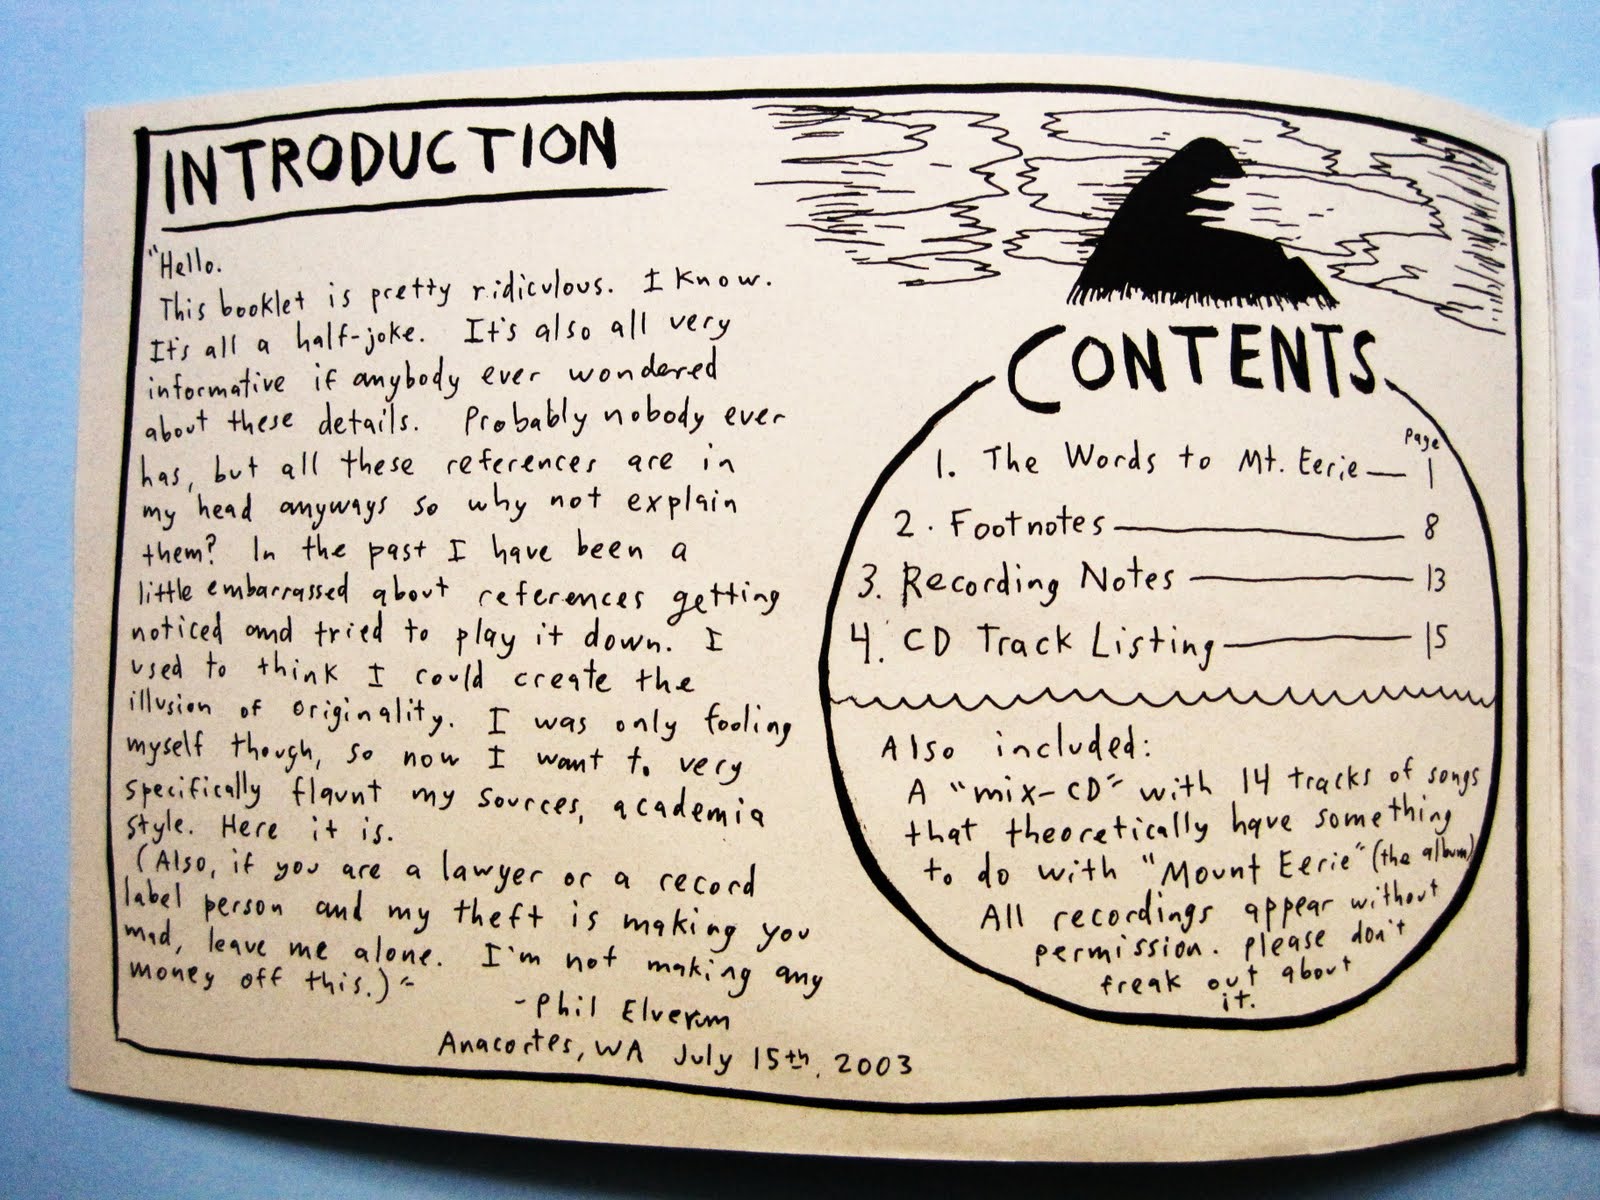 INTRODUCTION
"Hello.
This booklet is pretty ridiculous. I know.
It's all a half-joke. It's also all very
informative if anybody ever wondered
about these details. Probably nobody ever
has, but all these references are in
my head anyways so why not explain
them? In the past I have been a
little embarrassed about references getting
noticed and tried to play it down. I
used to think I could create the
illusion of originality. I was only fooling
myself though, so now I want to very
specifically flaunt my sources, academia
style. Here it is.
(Also, if you are a lawyer or a record
label person and my theft is making you
mad, leave me alone. I'm not making any
money off this.)"
-Phil Elverum
Anacortes, WA July 15th, 2003
CONTENTS
Page
1. The Words to Mt. Eerie 1
2. Footnotes 8
3. Recording Notes 13
4. CD Track Listing 15
Also included:
A "mix-CD" with 14 tracks of songs
that theoretically have something
to do with "Mount Eerie" (the album)
All recordings appear without
permission. Please don't
freak out about
it.